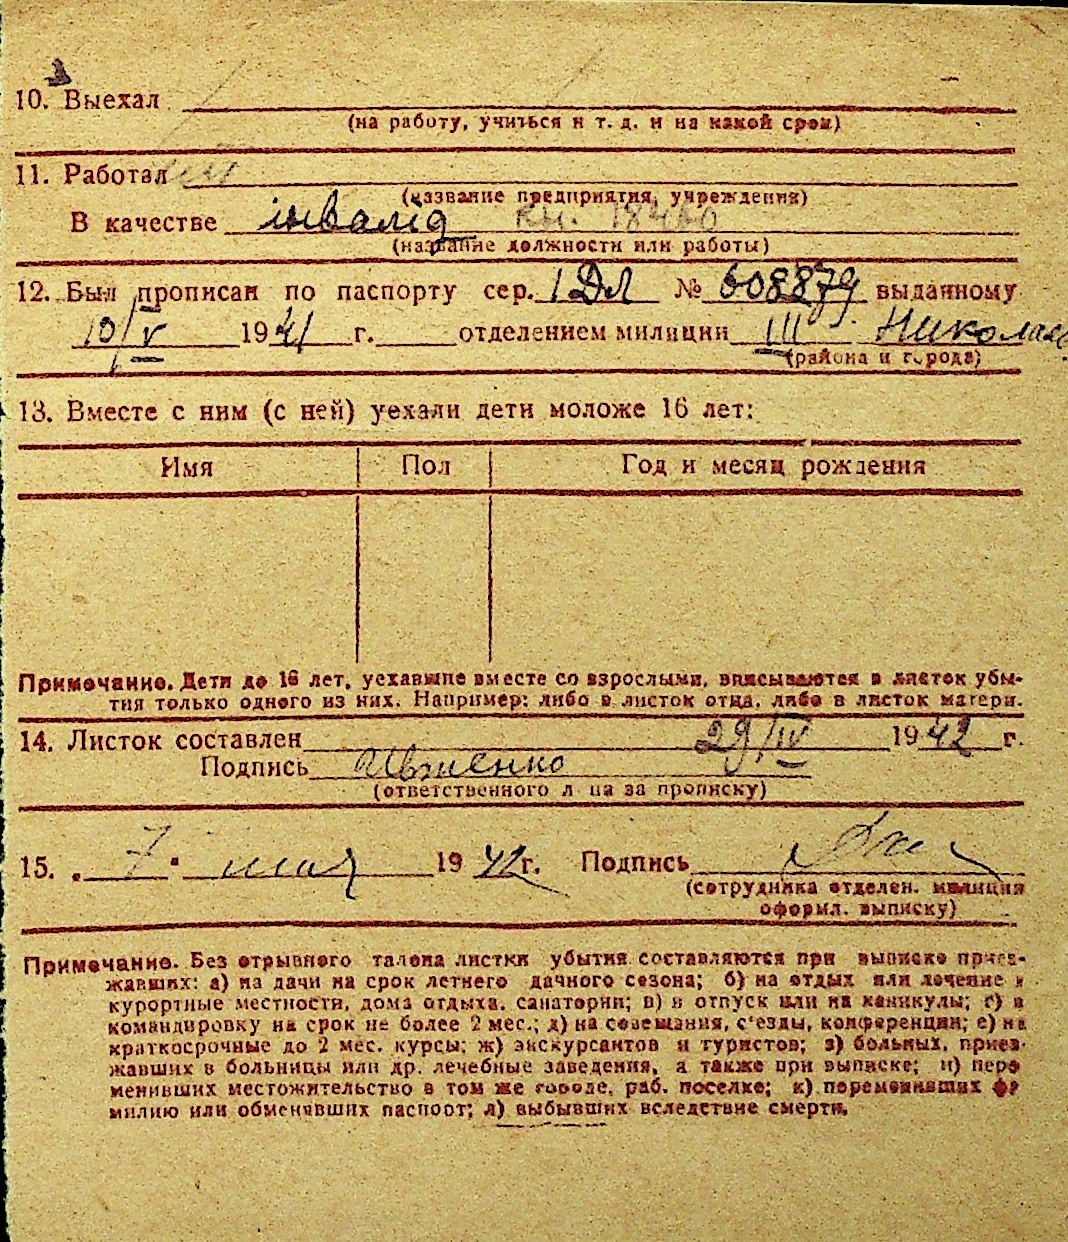 10. Выехал
(на работу, учиться и т. д. и на какой срок)
11. Работал
(название предприятия, учреждения)
В качестве інвалід кн. 18460
(название должности или работы)
12. Был прописан по паспорту сер. I ДЛ № 608879 выданному
10/V 1941 г. отделением милиции III
(района и города)
13. Вместе с ним (с ней) уехали дети моложе 16 лет:
Имя Пол Год и месяц рождения
Примечание. Дети до 16 лет, уехавшие вместе со взрослыми, вписываются в листок убы-
тия только одного из них. Например: либо в листок отца, либо в листок матери.
14. Листок составлен 29/IV 1942 г.
Подпись
(ответственного л ца за прописку)
15. „ 7 " мая 1942 г. Подпись
(сотрудника отделен. милиции
оформл. выписку)
Примечание. Без отрывного талона листки убытия составляются при выписке приез-
жавших: а) на дачи на срок летнего дачного сезона; б) на отдых или лечение в
курортные местности, дома отдыха, санатории; в) в отпуск или на каникулы; г) в
командировку на срок не более 2 мес.; д) на совещания, с'езды, конференции; е) на
краткосрочные до 2 мес. курсы; ж) экскурсантов и туристов; з) больных, приез-
жавших в больницы или др. лечебные заведения, а также при выписке; и) пере
менивших местожительство в том же городе, раб. поселке; к) переменивших фа
милию или обменявших паспорт; л) выбывших вследствие смерти.